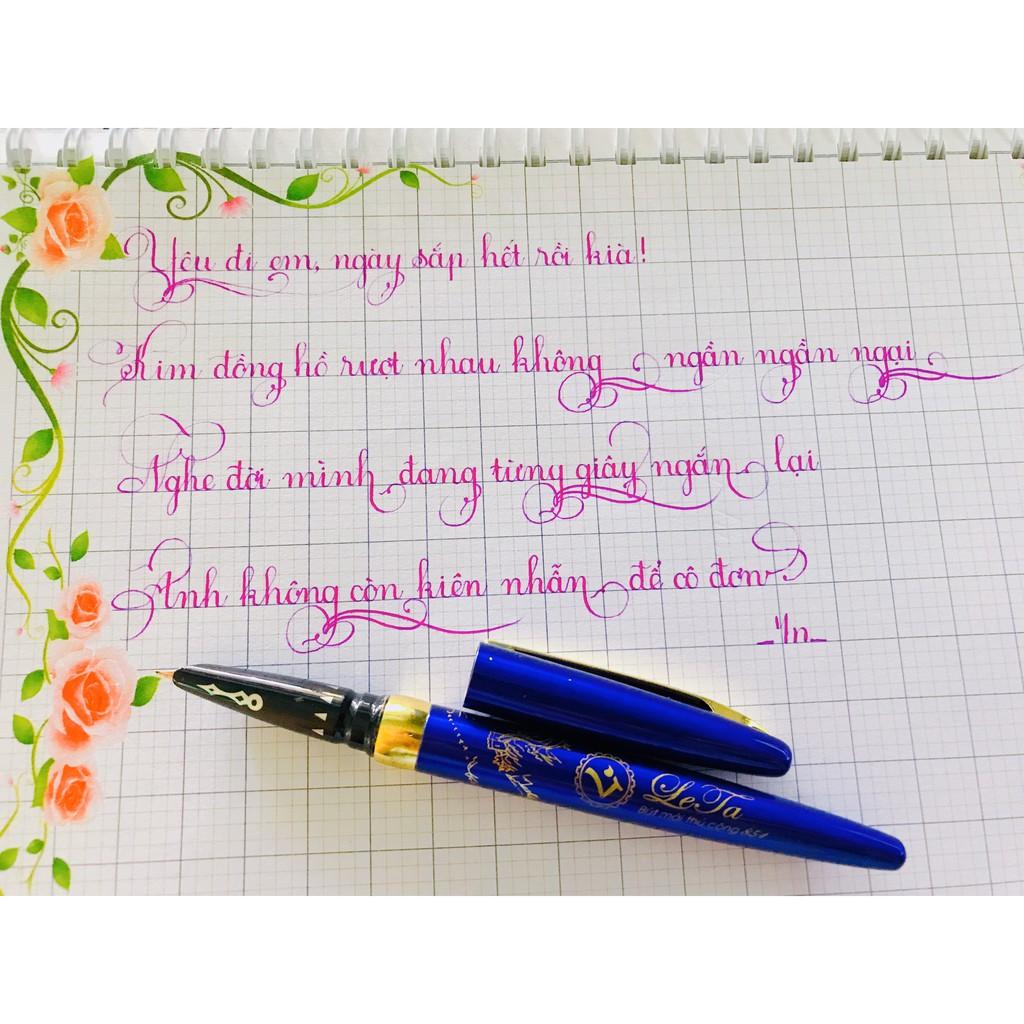 Yêu đi em, ngày sắp hết rồi kìa!
Kim đồng hồ rượt nhau không ngần ngần ngại
Nghe đời mình đang từng giây ngắn lại
Anh không còn kiên nhẫn để cô đơn
LeTa
Bút mài thủ công 851